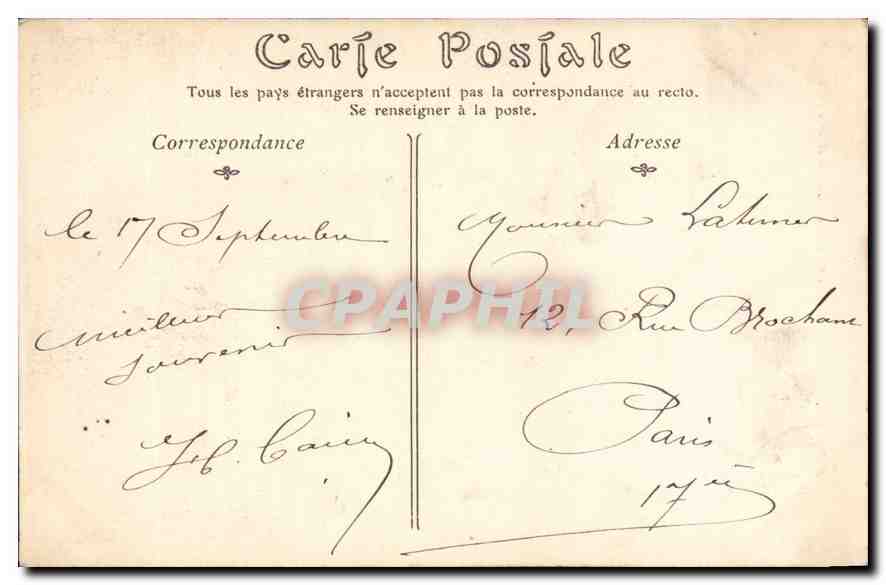 Carte Postale
Tous les pays étrangers n'acceptent pas la correspondance au recto.
Se renseigner à la poste.
Correspondance
le 17 Septembre
Meilleur
souvenir
Adresse
Monsieur
12, Rue Brochant
Paris
17è
CPAPHIL